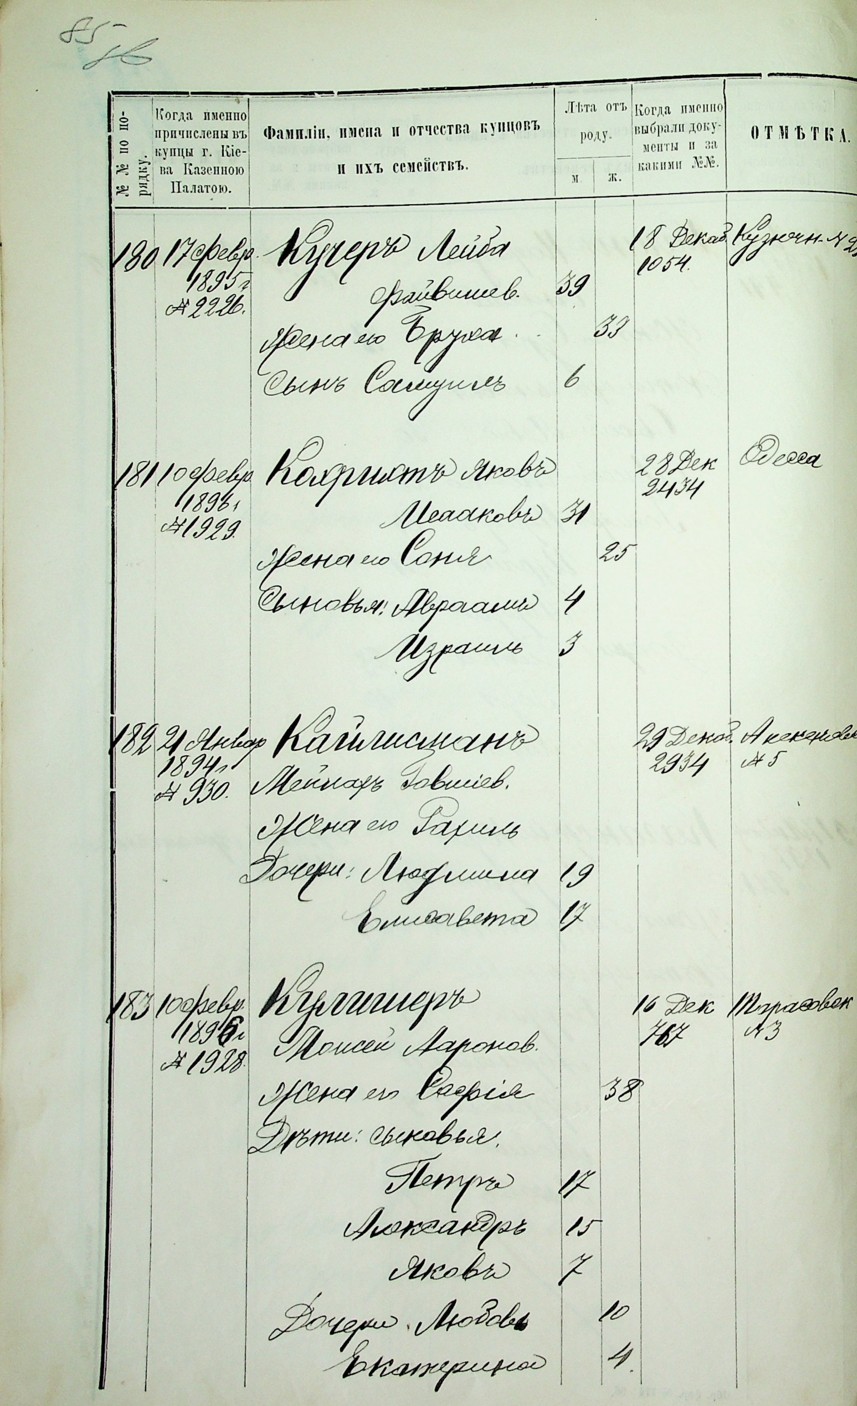 85
№№ по порядку.
Когда именно причислены въ купцы г. Кіева Казенною Палатою.
Фамиліи, имена и отчества купцовъ и ихъ семействъ.
Лѣта отъ роду.
м
ж.
Когда именно выбрали документы и за какими №№.
ОТМѢТКА.
180 17 февр. Кучеръ Лейба 18 Декаб. Кузнечн. №
1895 г. Файвишев. 39 1054.
№ 2226.
Жена его Бруха 33
Сынъ Самуилъ 6
181 10 февр Яковъ 28 Дек Одесса
189 г. Исааковъ 31 2434
№ 1929.
Жена его Соня 25
Сыновья: Авраамъ 4
Израиль 3
182 21 Январ Кайлисманъ 29 Декаб.
1894 г. Говшіев. 2934 № 5
№ 930.
Жена его Рахиль
Дочери: Людмила 19
Елисавета 17
183 10 февр. Кулишеръ 16 Дек Тарасовск
1896 г. Моисей Ааронов. 767 № 3
№ 1928.
Жена его Софія 38
Дѣти: сыновья.
Петръ 17
Александръ 15
Яковъ 7
Дочери. Любовь 10
Екатерина 4.